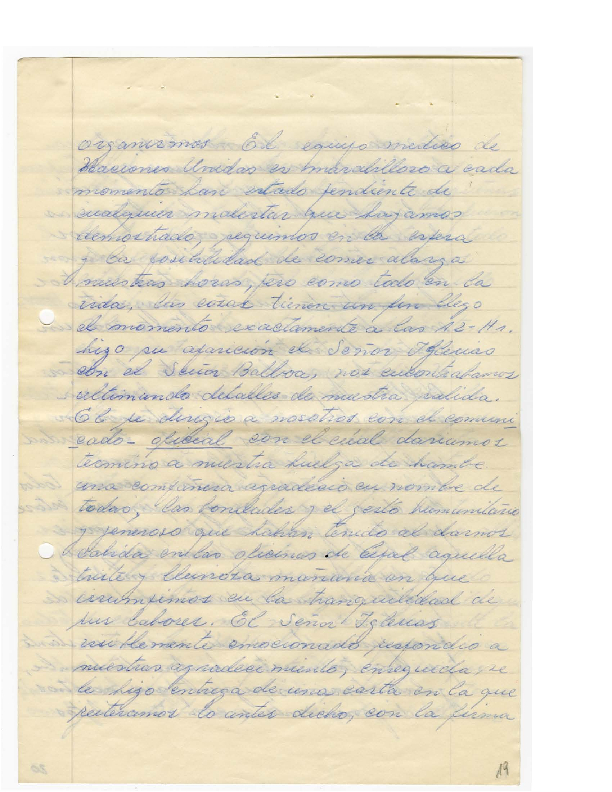 organismos El equipo medico de
Naciones Unidas es marabilloso a cada
momento han estado pendiente de
cualquier malestar que hayamos
demostrado, seguimos en la espera
y la posibilidad de comer alarga
nuestras horas, pero como todo en la
vida, las cosas tienen un fin llego
el momento exactamente a las 12-Hrs.
hizo su aparición el Señor Iglesias
con el Señor Balboa, nos encontrabamos
ultimando detalles de nuestra salida.
El se dirigio a nosotros con el comuni
cado- oficial con el cual dariamos
termino a nuestra huelga de hambre
una compañera agradecio en nombre de
todas, las bondades y el gesto humanitario
y jeneroso que habian tenido al darnos
cabida en las oficinas de Cepal aquella
triste y lluviosa mañana en que
irrumpimos en la tranquilidad de
sus labores. El Señor Iglesias
visiblemente emocionado respondio a
nuestros agradecimiento, enseguida se
le hizo entrega de una carta en la que
reiteramos lo antes dicho, con la firma
19
20